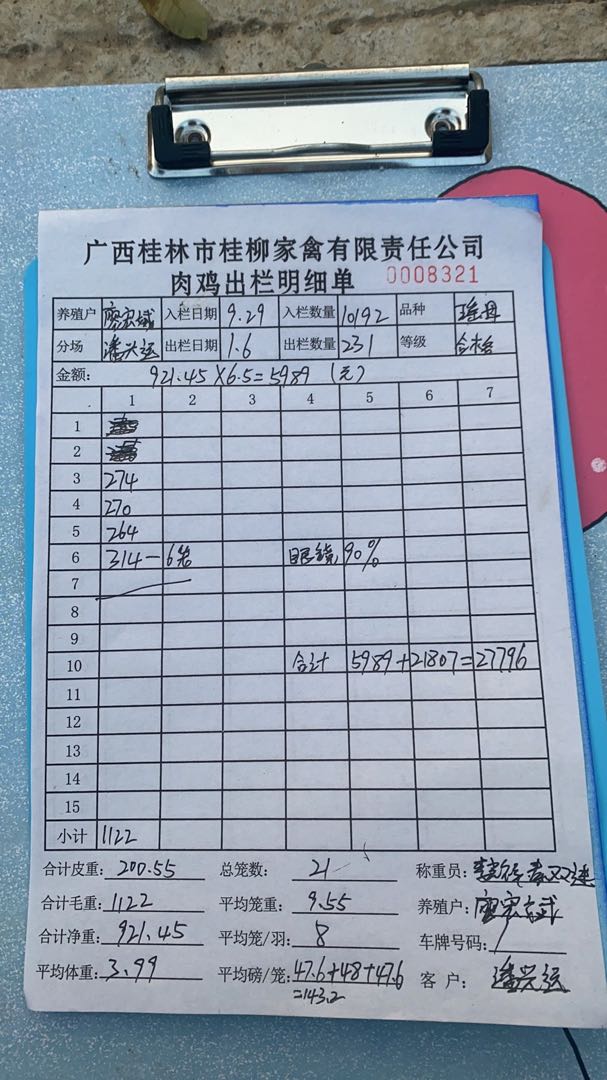 广西桂林市桂柳家禽有限责任公司
肉鸡出栏明细单 0008321
养殖户 廖宏斌 入栏日期 9.29 入栏数量 10192 品种
分场 潘兴运 出栏日期 1.6 出栏数量 231 等级 合格
金额: 921.45×6.5=5989 (元)
1 2 3 4 5 6 7
1
2
3 274
4 270
5 264
6 314-6羽 眼镜 90%
7
8
9
10 合计 5989+21807=27796
11
12
13
14
15
小计 1122
合计皮重: 200.55 总笼数: 21 称重员:
合计毛重: 1122 平均笼重: 9.55 养殖户: 廖宏斌
合计净重: 921.45 平均笼/羽: 8 车牌号码: /
平均体重: 3.99 平均磅/笼: 47.6+48+47.6 客户: 潘兴运
=143.2